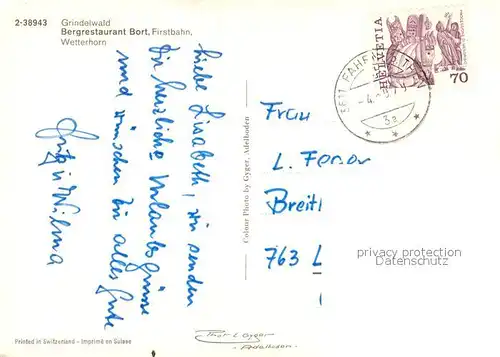 2-38943 Grindelwald
Bergrestaurant Bort, Firstbahn,
Wetterhorn
Liebe Lisabeth, wir senden
Dir herzliche Urlaubsgrüsse
und wünschen Dir alles Gute
Fritz u Wilma
Colour Photo by Gyger, Adelboden
HELVETIA
70
3a
Frau
L.
Breitl
763 L
privacy protection
Datenschutz
Printed in Switzerland - Imprimé en Suisse
Gyger
Adelboden